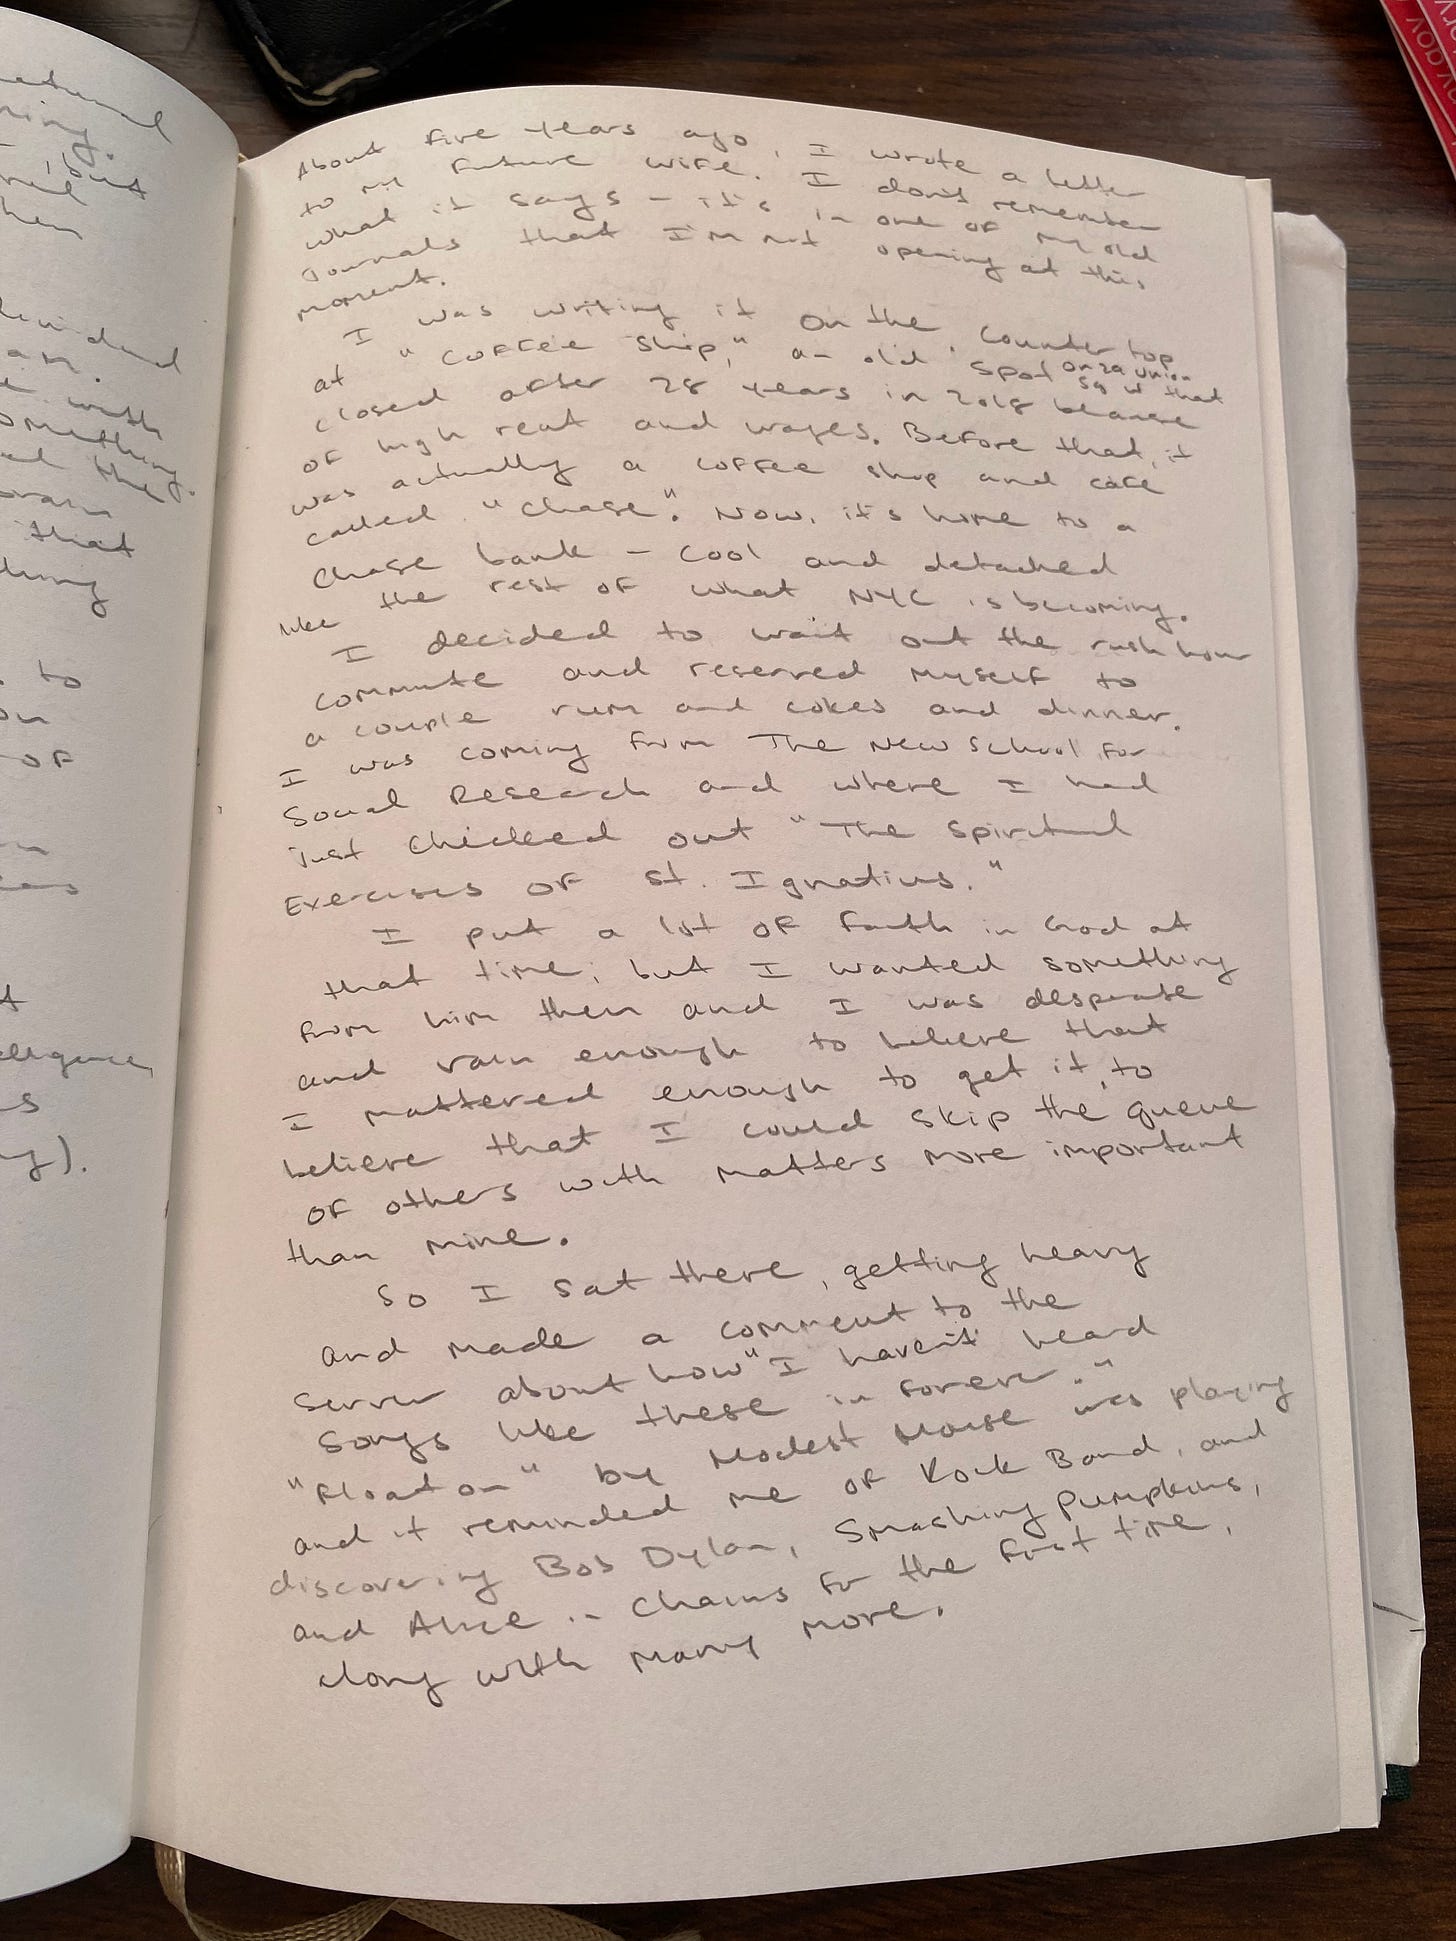 About five years ago, I wrote a letter
to my future wife. I don't remember
what it says - it's in one of my old
journals that I'm not opening at this
moment.
I was writing it on the countertop
at "Coffee Shop," an old spot on Union
Sq W that
closed after 28 years in 2018 because
of high rent and wages. Before that, it
was actually a coffee shop and café
called "Chase". Now, it's home to a
Chase bank - cool and detached
like the rest of what NYC is becoming.
I decided to wait out the rush hour
commute and reserved myself to
a couple rum and cokes and dinner.
I was coming from The New School for
Social Research and where I had
just checked out "The Spiritual
Exercises of St. Ignatius."
I put a lot of faith in God at
that time, but I wanted something
from him then and I was desperate
and vain enough to believe that
I mattered enough to get it, to
believe that I could skip the queue
of others with matters more important
than mine.
So I sat there, getting heavy
and made a comment to the
server about how "I haven't heard
songs like these in forever."
"Float on" by Modest Mouse was playing
and it reminded me of Rock Band, and
discovering Bob Dylan, Smashing Pumpkins,
and Alice in Chains for the first time,
along with many more.